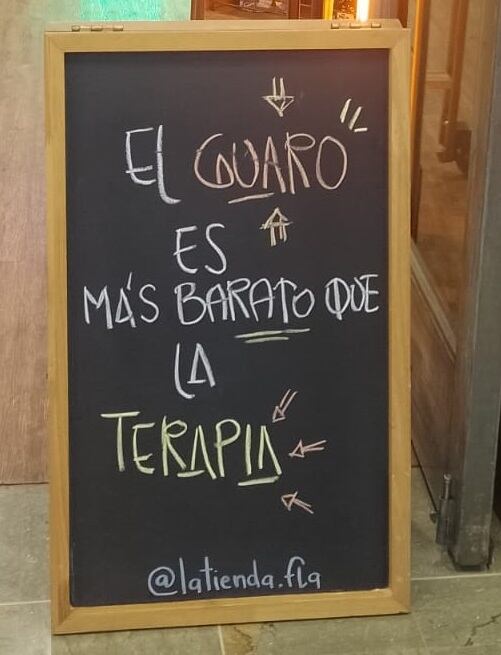 EL GUARO
ES
MÁS BARATO QUE
LA
TERAPIA
@latienda.fla